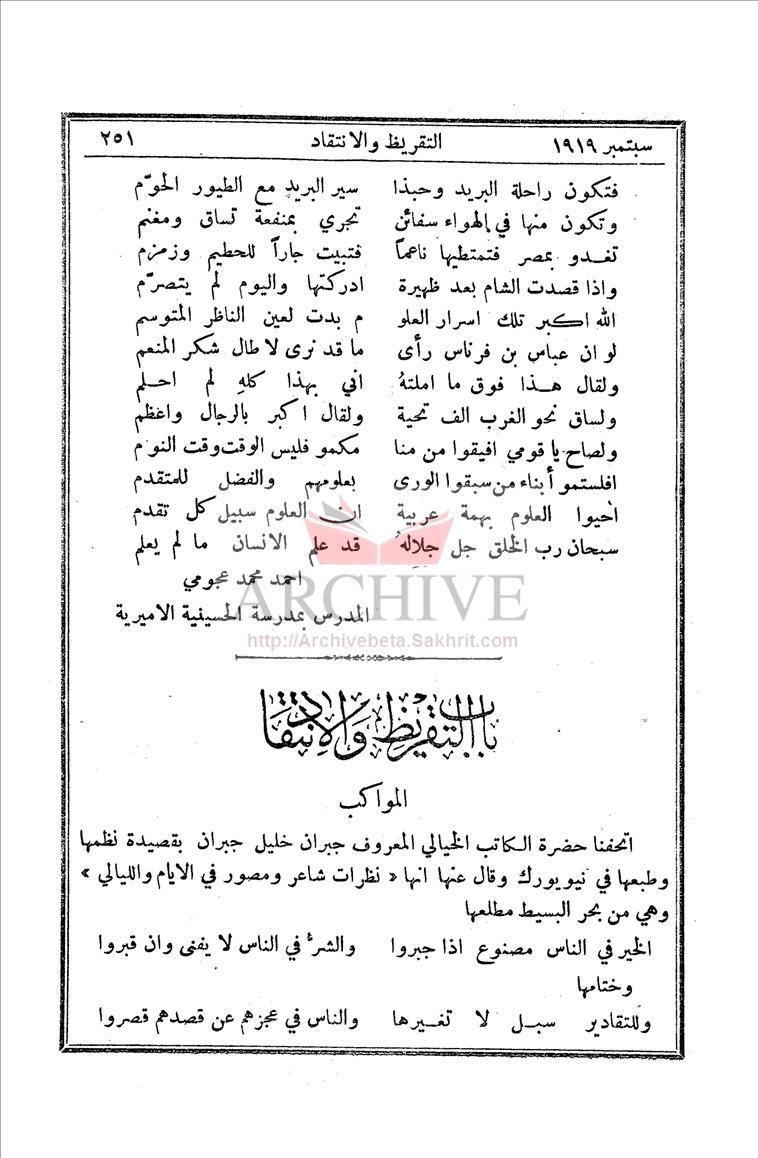 سبتمبر ١٩١٩ التقريظ والانتقاد ٢٥١
فتكون راحلة البريد وحبذا سير البريد مع الطيور الحوّم
وتكون منها في الهواء سفائن تجري بمنفعة تساق ومغنم
تغدو بمصر فتمتطيها ناعماً فتبيت جاراً للحطيم وزمزم
واذا قصدت الشام بعد ظهيرة ادركتها واليوم لم يتصرّم
الله اكبر تلك اسرار العلو م بدت لعين الناظر المتوسم
لو ان عباس بن فرناس رأى ما قد نرى لاطال شكر المنعم
ولقال هذا فوق ما املتهُ اني بهذا كلهِ لم احلم
ولساق نحو الغرب الف تحية ولقال اكبر بالرجال واعظم
ولصاح يا قومي افيقوا من منا مكمو فليس الوقت وقت النوم
افلستمو أبناء من سبقوا الورى بعلومهم والفضل للمتقدم
احيوا العلوم بهمة عربية ان العلوم سبيل كل تقدم
سبحان رب الخلق جل جلالهُ قد علم الانسان ما لم يعلم
احمد محمد عجومي
ARCHIVE
المدرس بمدرسة الحسينية الاميرية
http://Archivebeta.Sakhrit.com
باب التقريظ والانتقاد
المواكب
اتحفنا حضرة الكاتب الخيالي المعروف جبران خليل جبران بقصيدة نظمها
وطبعها في نيويورك وقال عنها انها « نظرات شاعر ومصور في الايام والليالي »
وهي من بحر البسيط مطلعها
الخير في الناس مصنوع اذا جبروا والشرُّ في الناس لا يفنى وان قبروا
وختامها
وللتقادير سبل لا تغيرها والناس في عجزهم عن قصدهم قصروا